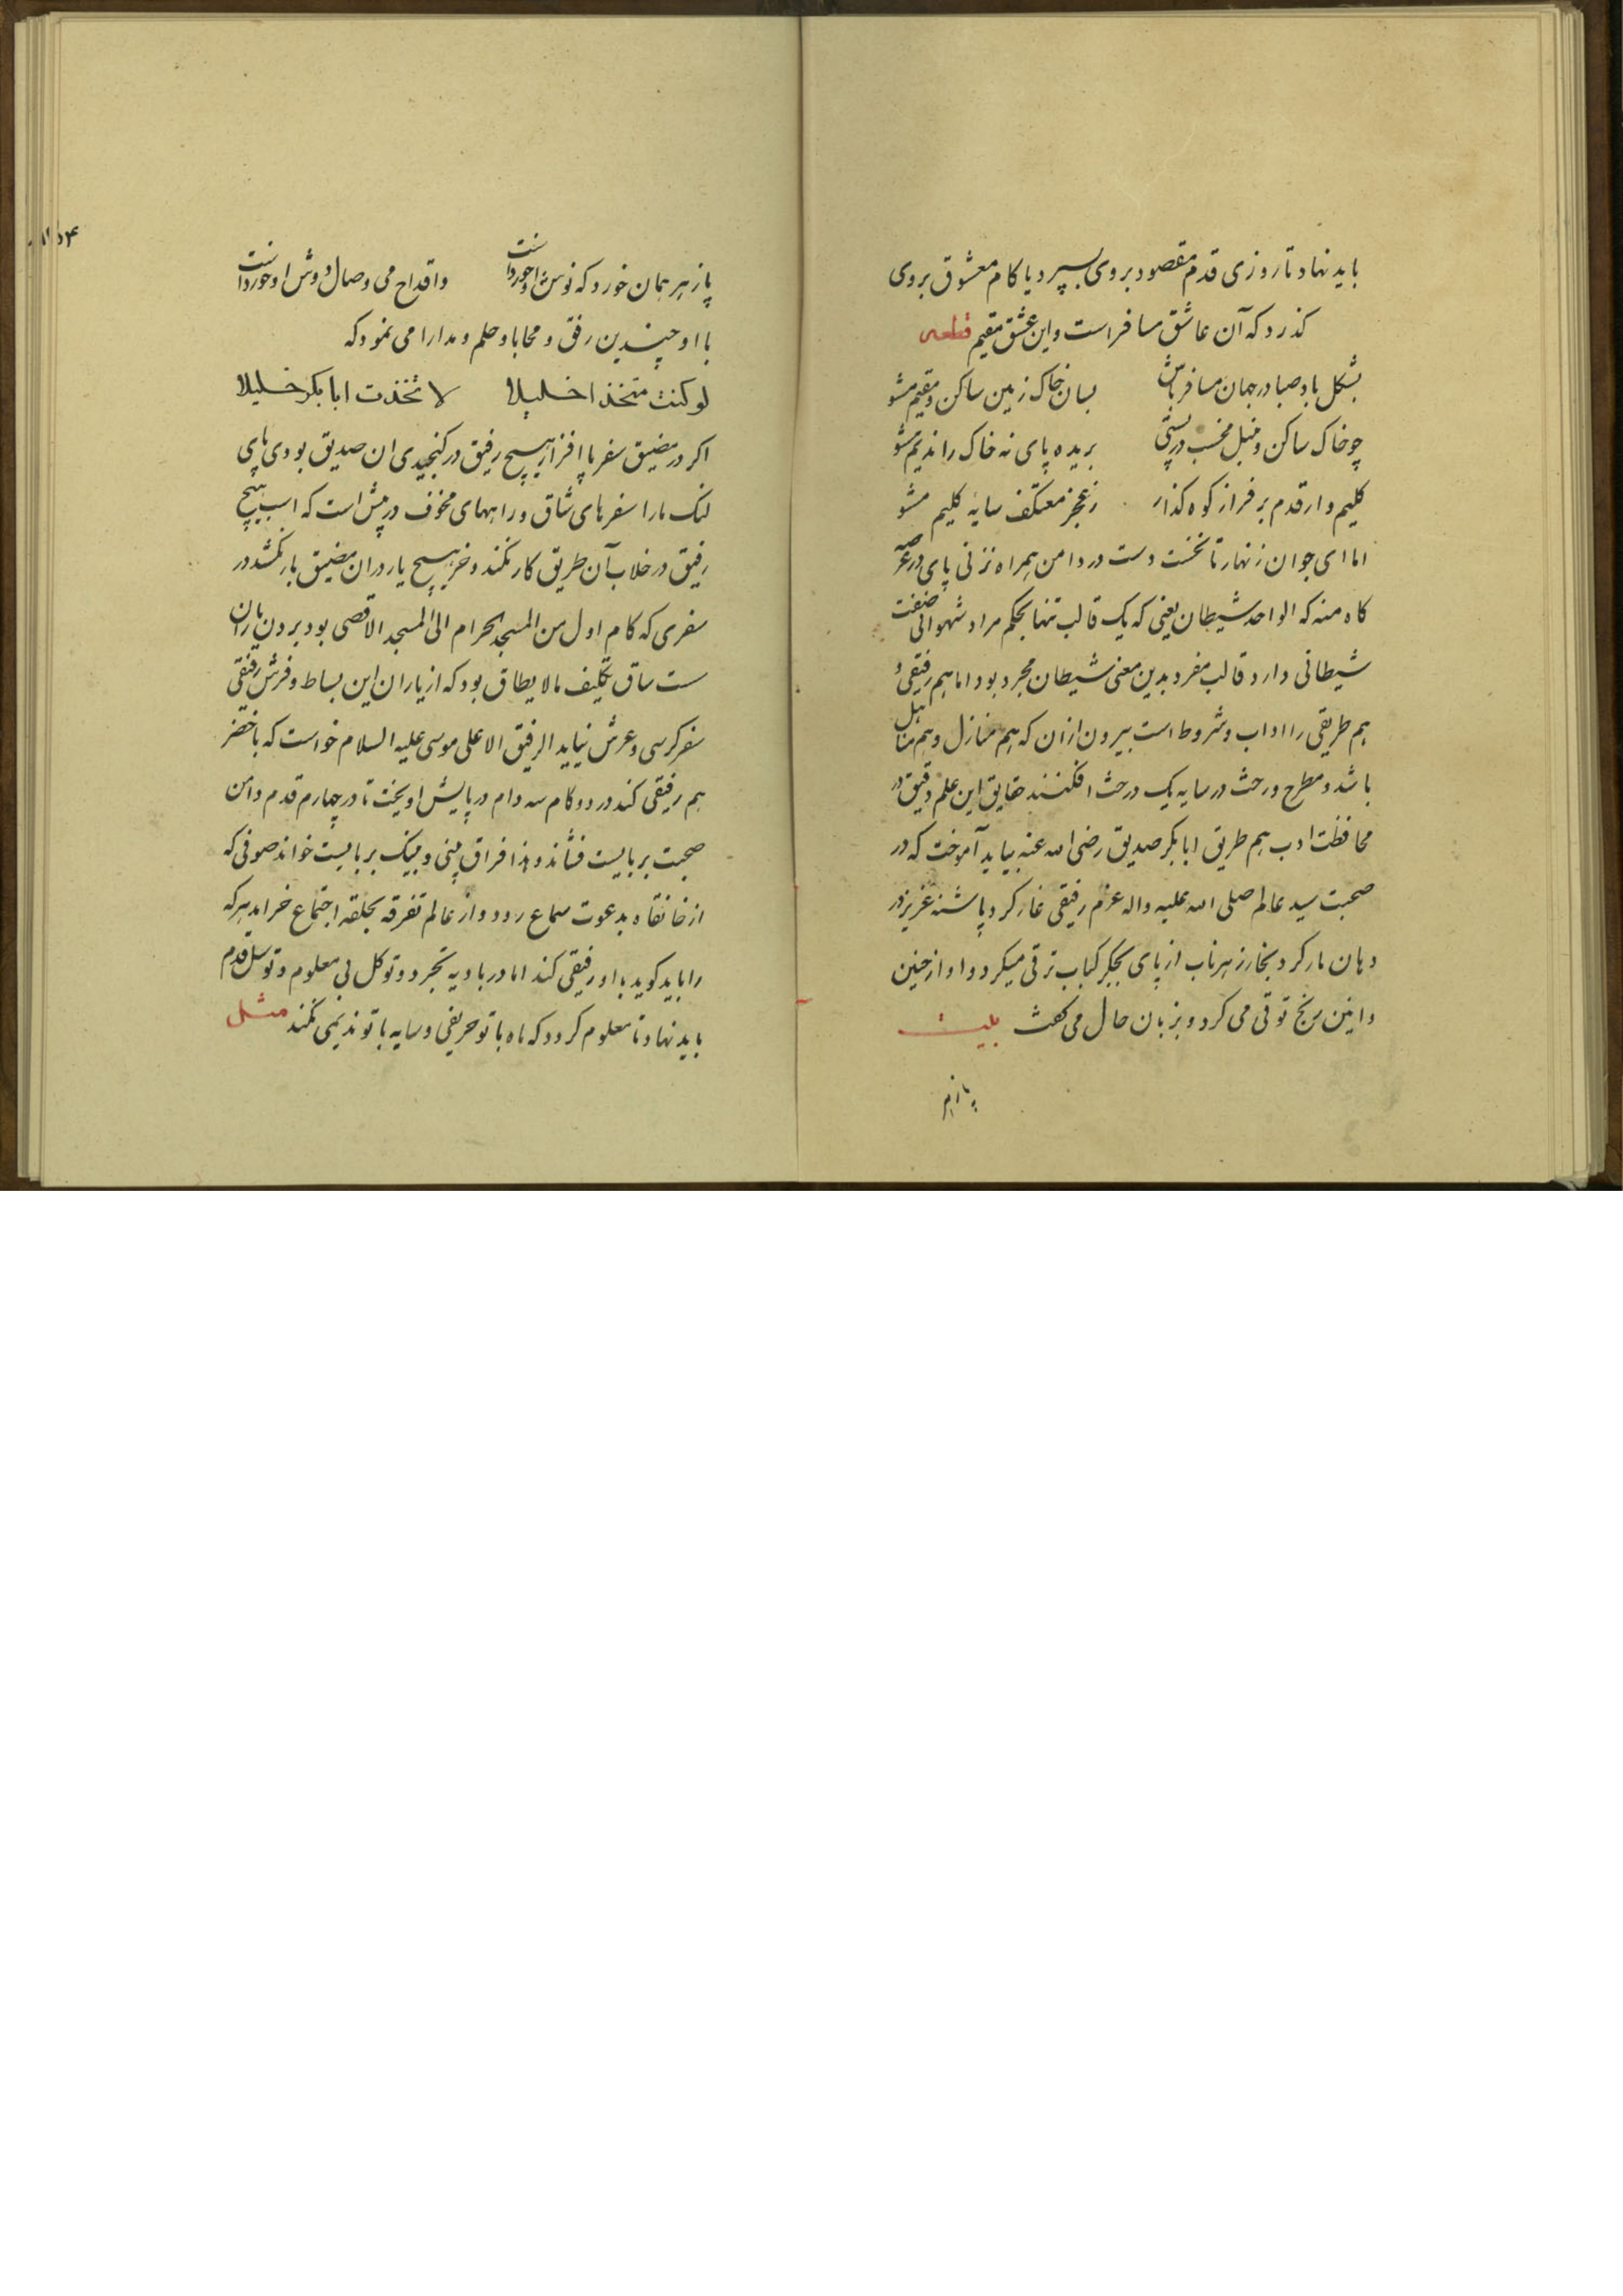 باید نهاد تا روزی قدم مقصود بروی بسپرد یا کام معشوق بروی
کذرد که آن عاشق مسافر است و این عشق مقیم قطعه
بشکل باد صبا در جهان مسافر باش بسان خاک زمین ساکن و مقیم مشو
چو خاک ساکن و منبل مخسب در پستی بریده پای نه خاک را ندیم مشو
کلیم وار قدم بر فراز کوه کذار ز عجز معتکف سایه کلیم مشو
اما ای جوان زنهار تا نخست دست در دامن همراه نزنی پای در عرصه
کاه منه که الواحد شیطان یعنی که یک قالب تنها بحکم مراد شهوانی صفت
شیطانی دارد قالب مفرد بدین معنی شیطان مجرد بود اما هم رفیقی و
هم طریقی را اداب و شروط است بیرون ازان که هم منازل و هم مناهل
باشد و مطرح ورخت در سایه یک درخت افکنند حقایق این علم دقیق در
محافظت ادب هم طریق ابابکر صدیق رضی الله عنه بباید آموخت که در
صحبت سید عالم صلی الله علیه واله عزم رفیقی غار کرد و پاشنه عزیز در
دهان مار کرد بخار زهر ناب از پای بجکر کباب ترقی میکرد و او از حنین
و انین رنج توقی می کرد و بزبان حال می کفت بیت
پازهر
پازهر همان خورد که نوش او خوردست و اقداح می وصال دوش او خوردست
با او چندین رفق و محابا و حلم و مدارا می نمود که
لو کنت متخذا خلیلا لا تخذت ابابکر خلیلا
اکر در مضیق سفر ما افزار هیچ رفیق در کنجیدی ان صدیق بودی پای
لنک مارا سفرهای شاق و راههای مخوف در پیش است که اسب هیچ
رفیق در خلاب آن طریق کار نکند و خر هیچ یار دران مضیق بار نکشد در
سفری که کام اول من المسجد الحرام الی المسجد الاقصی بود بردن یاران
سست ساق تکلیف مالا یطاق بود که از یاران این بساط و فرش رفیقی
سفر کرسی و عرش نیاید الرفیق الاعلی موسی علیه السلام خواست که با خضر
هم رفیقی کند در دو کام سه دام در پایش اویخت تا در چهارم قدم دامن
صحبت بر بایست فشاند و هذا فراق بینی و بینک بر بایست خواند صوفی که
از خانقاه بدعوت سماع رود و از عالم تفرقه بحلقه اجتماع خرامد هرکه
را باید کوید با او رفیقی کند اما در بادیه تجرد و توکل بی معلوم و توسل قدم
باید نهاد تا معلوم کردد که ماه با تو حریفی و سایه با تو ندیمی نکند مثل